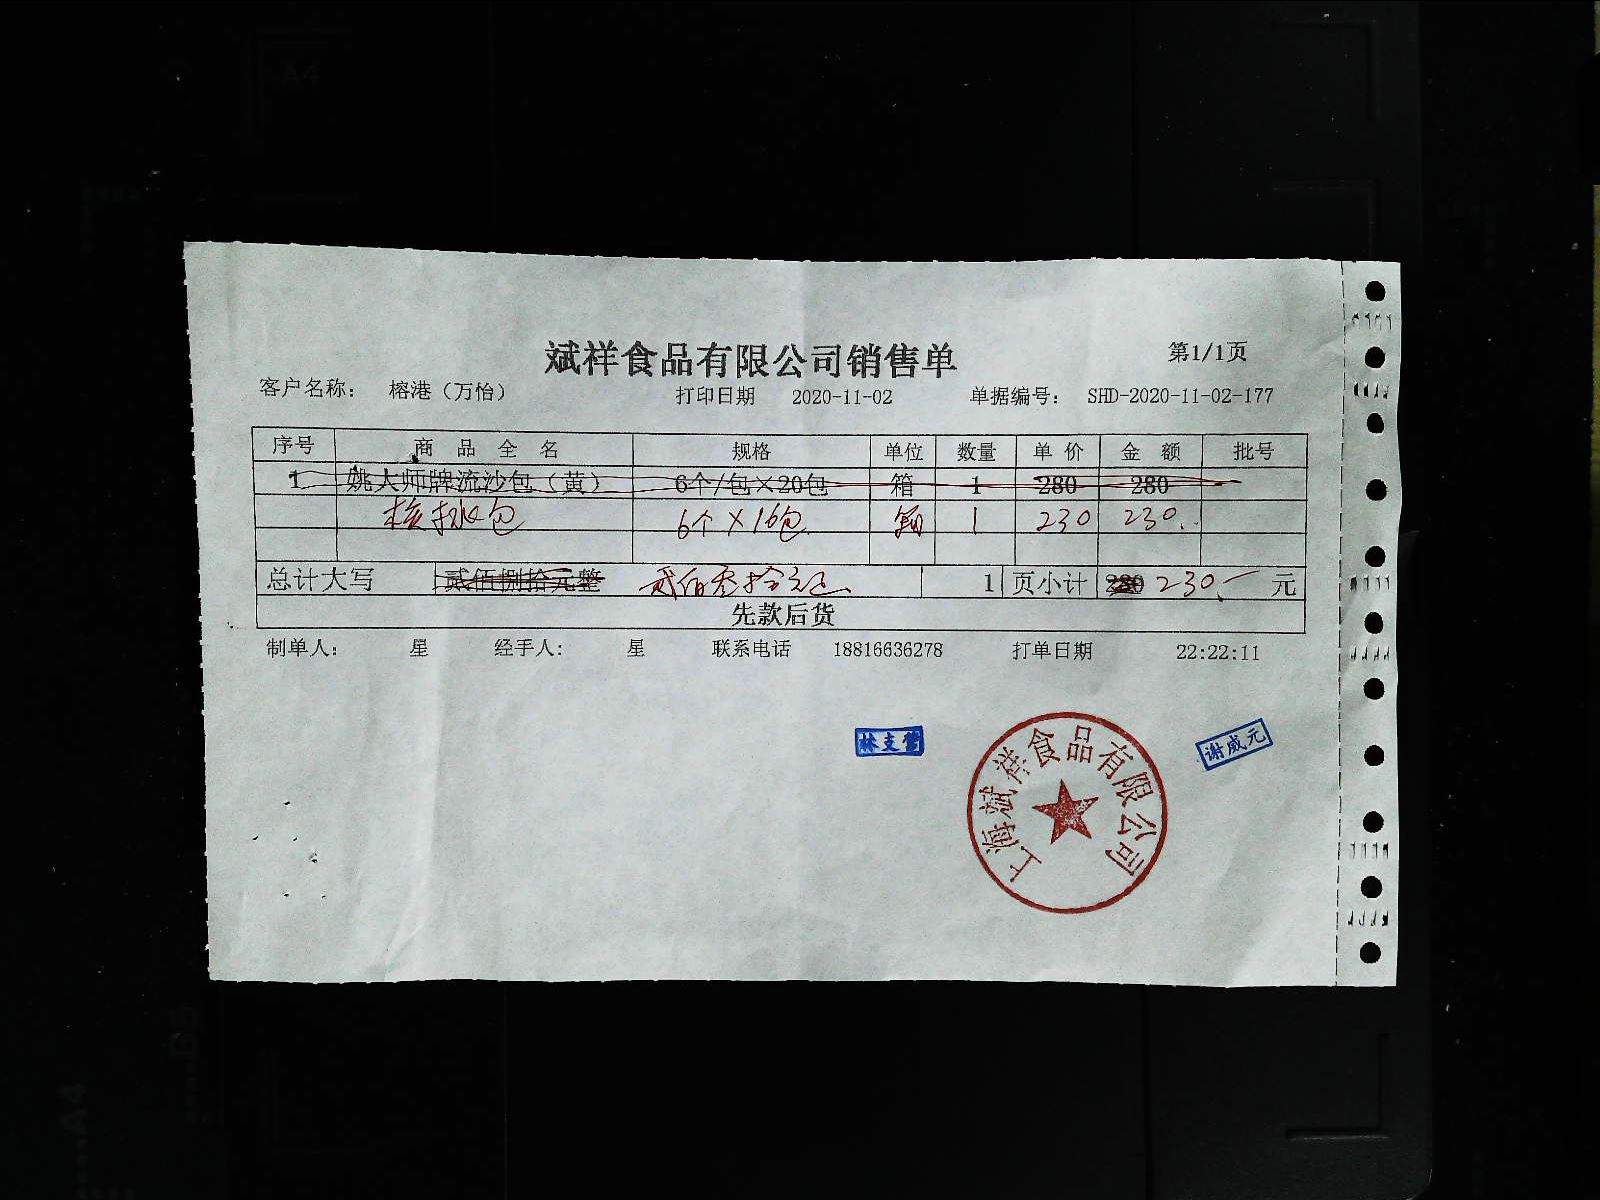 斌祥食品有限公司销售单
第1/1页
客户名称： 榕港（万怡） 打印日期 2020-11-02 单据编号： SHD-2020-11-02-177
序号 商品全名 规格 单位 数量 单价 金额 批号
1 姚大师牌流沙包（黄） 6个/包×20包 箱 1 280 280
核桃包 6个×16包 箱 1 230 230.
总计大写 贰佰捌拾元整 贰佰叁拾元正 1 页小计 280 230.- 元
先款后货
制单人： 星 经手人： 星 联系电话 18816636278 打单日期 22:22:11
谢威元
上海斌祥食品有限公司